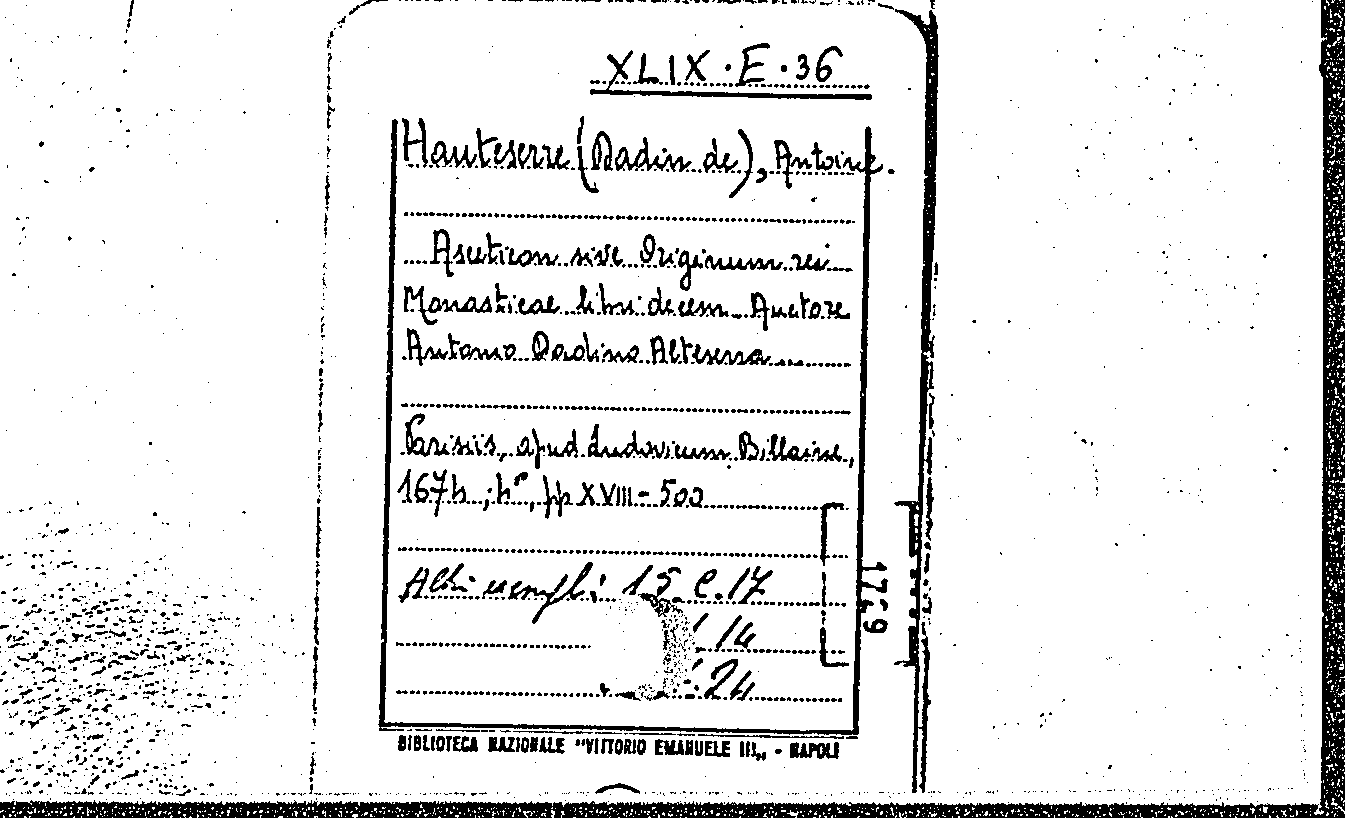 XLIX·E·36
Hauteserre (Dadin de), Antoine.
Asceticon sive Originum rei
Monasticae libri decem Auctore
Antonio Dadino Alteserra...
Parisiis, apud Ludovicum Billaine,
1674, 4°, pp XVIII-500
Altri esempl: 15.C.17
14
24
BIBLIOTECA NAZIONALE "VITTORIO EMANUELE III„ - NAPOLI